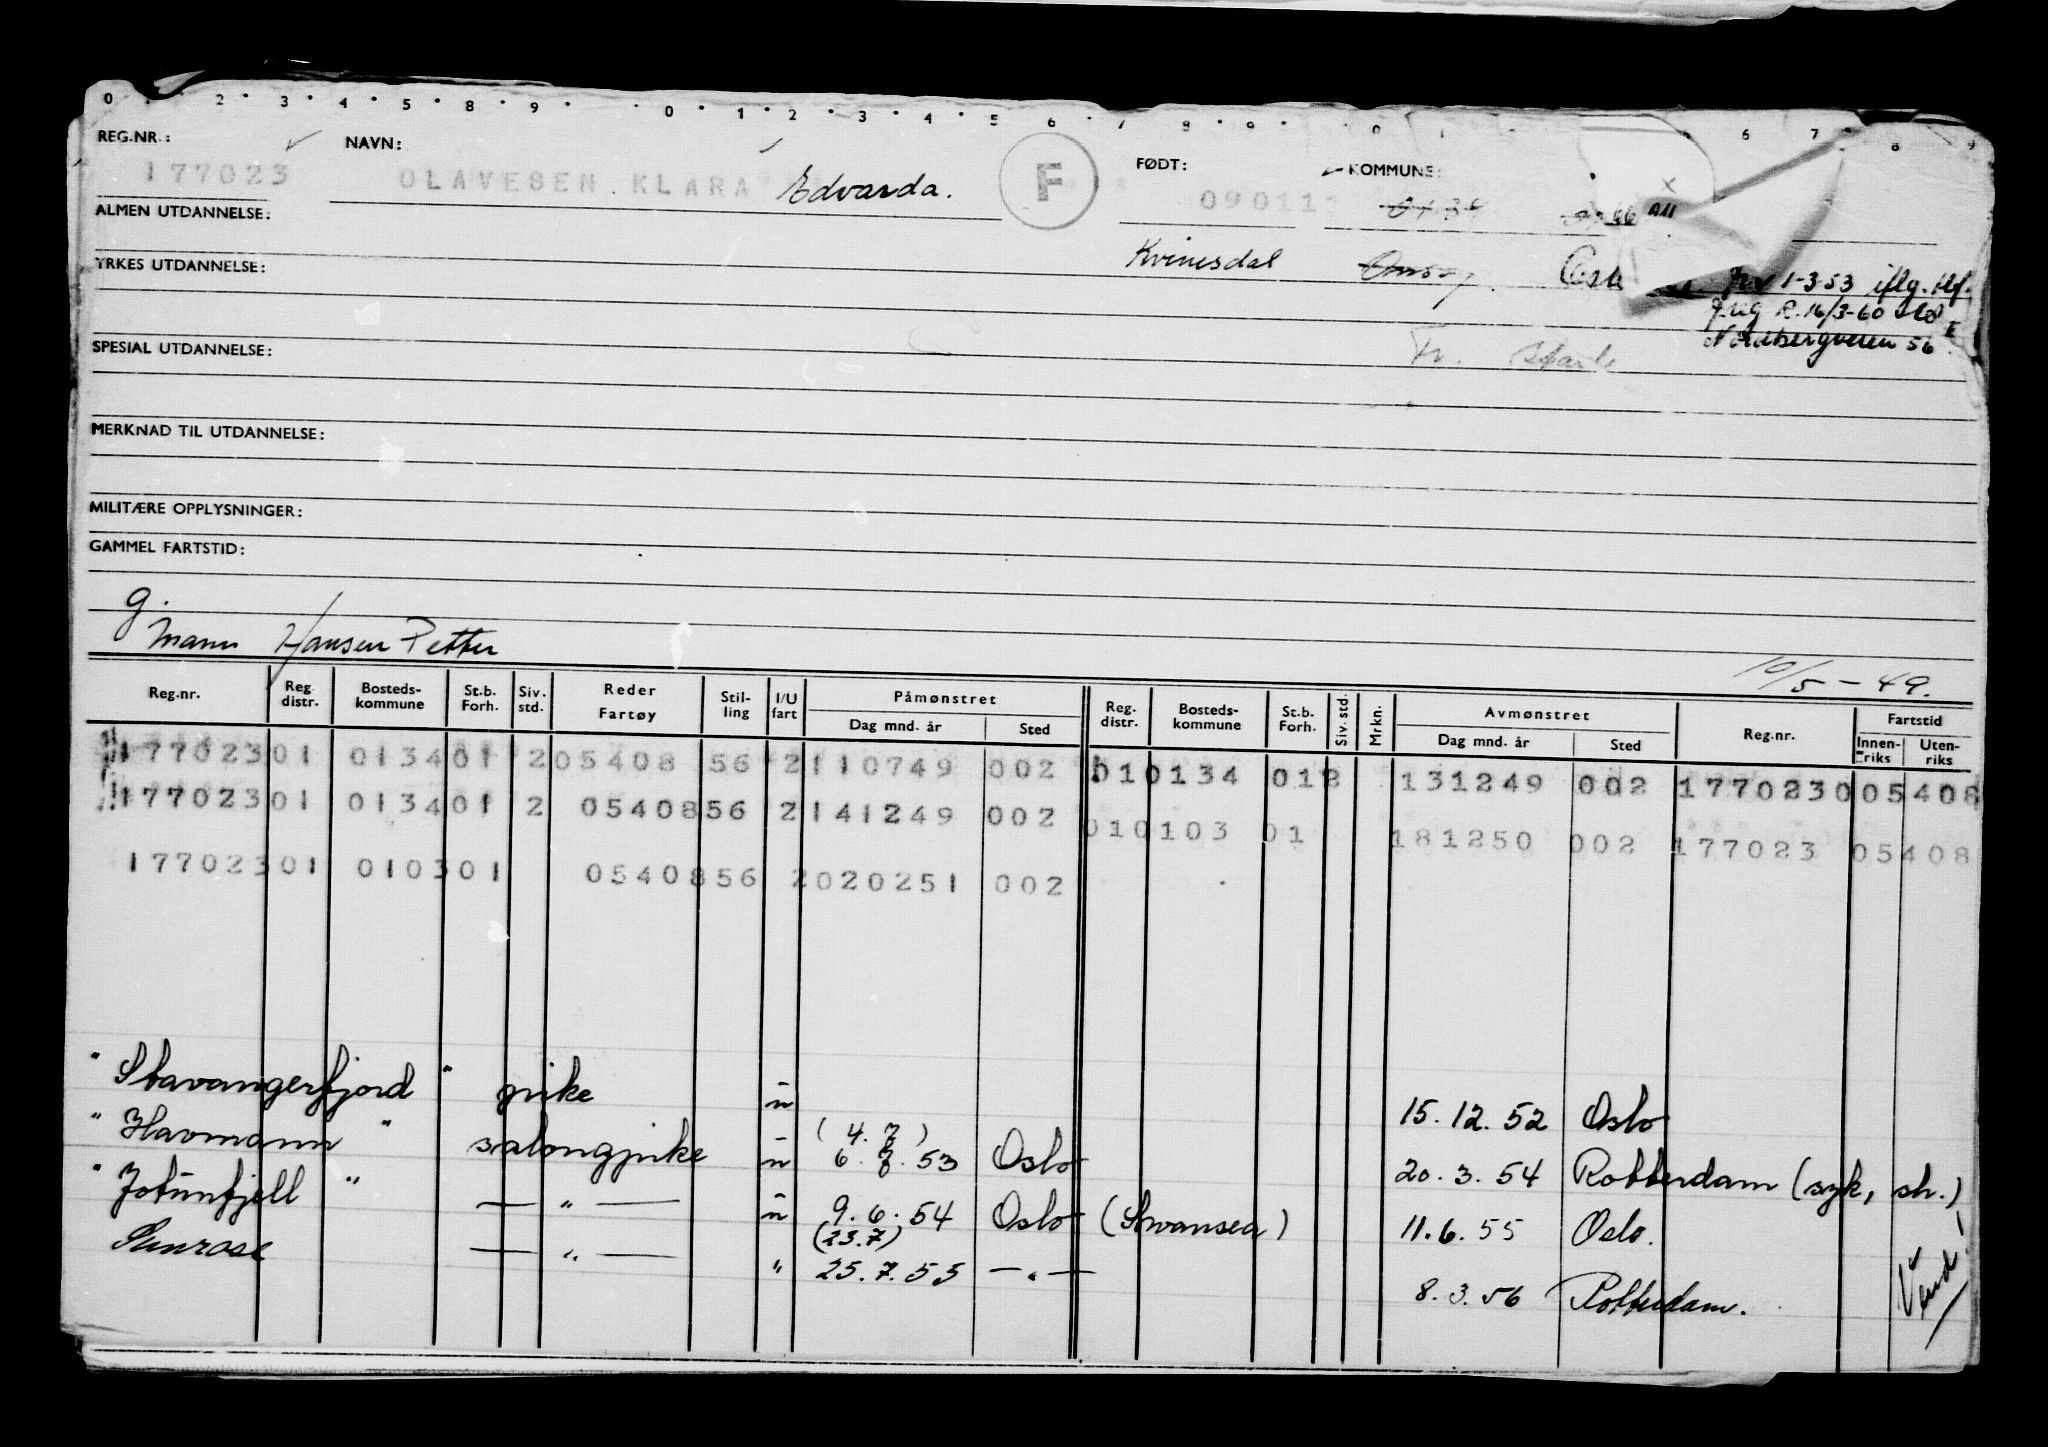 0 . 2 . 3 . 4 . 5 . 8 . 9 . . 0 . 1 . 2 . 3 . 4 . 5 . 6 . 7 . 8 . 9 . 0 6 7 8 9
REG.NR.: NAVN: FØDT: KOMMUNE:
177023 OLAVESEN KLARA Edvarda. F 09011
ALMEN UTDANNELSE:
Kvinesdal
YRKES UTDANNELSE: 1-3-53 iflg. tlf.
R. 16/3-60
SPESIAL UTDANNELSE: Nordbergveien 56
MERKNAD TIL UTDANNELSE:
MILITÆRE OPPLYSNINGER:
GAMMEL FARTSTID:
g.
Mann Hansen Petter
10/5-49.
Reg.nr. Reg. distr. Bosteds-kommune St.b. Forh. Siv. std. Reder Fartøy Stil-ling I/U fart Påmønstret Dag mnd. år Sted Reg. distr. Bosteds-kommune St.b. Forh. Siv. std. Mrkn. Avmønstret Dag mnd. år Sted Reg.nr. Fartstid Innen-riks Uten-riks
177023 01 0134 01 2 05408 56 2 110749 002 01 0134 01 2 131249 002 177023 0 05408
177023 01 0134 01 2 05408 56 2 141249 002 01 0103 01 181250 002 177023 05408
177023 01 0103 01 05408 56 2 020251 002
" Stavangerfjord " pike u 15.12.52 Oslo
" Havmann " salongpike u (4.7) 6.7.53 Oslo 20.3.54 Rotterdam (syk, sh.)
" Jotunfjell " — " — u 9.6.54 Oslo (Swansea) 11.6.55 Oslo.
Sunrose — " — " (23.7) 25.7.55 — " — 8.3.56 Rotterdam.
Vend!